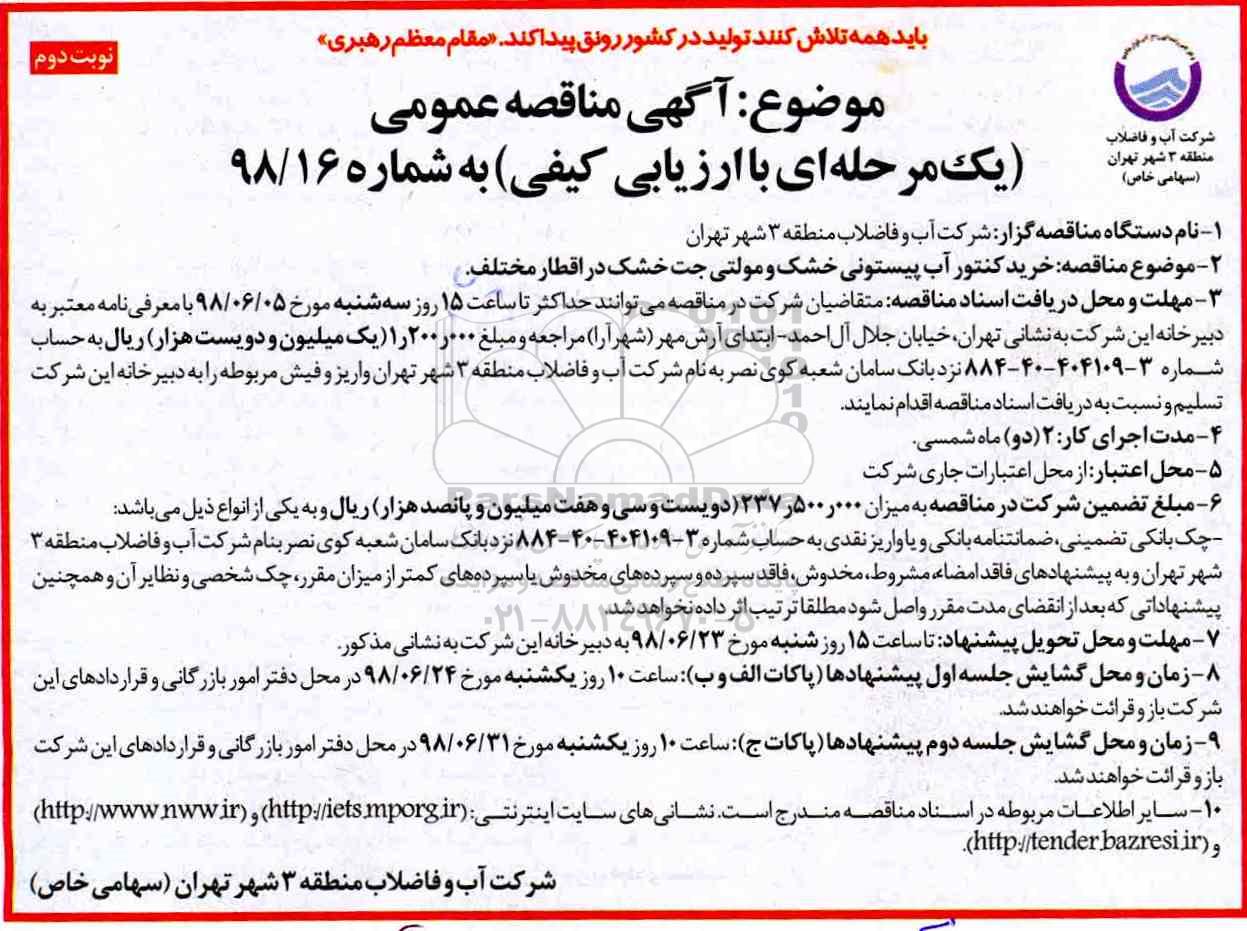 باید همه تلاش کنند تولید در کشور رونق پیدا کند. «مقام معظم رهبری»
نوبت دوم
شرکت آب و فاضلاب
منطقه ۳ شهر تهران
(سهامی خاص)
موضوع: آگهی مناقصه عمومی
(یک مرحله‌ای با ارزیابی کیفی) به شماره ۹۸/۱۶
۱- نام دستگاه مناقصه گزار: شرکت آب و فاضلاب منطقه ۳ شهر تهران
۲- موضوع مناقصه: خرید کنتور آب پیستونی خشک و مولتی جت خشک در اقطار مختلف.
۳- مهلت و محل دریافت اسناد مناقصه: متقاضیان شرکت در مناقصه می‌توانند حداکثر تا ساعت ۱۵ روز سه‌شنبه مورخ ۹۸/۰۶/۰۵ با معرفی‌نامه معتبر به
دبیرخانه این شرکت به نشانی تهران، خیابان جلال آل‌احمد- ابتدای آرش‌مهر (شهرآرا) مراجعه و مبلغ ۱٫۲۰۰٫۰۰۰ (یک میلیون و دویست هزار) ریال به حساب
شماره ۳-۴۰۴۱۰۹-۴۰-۸۸۴ نزد بانک سامان شعبه کوی نصر به نام شرکت آب و فاضلاب منطقه ۳ شهر تهران واریز و فیش مربوطه را به دبیرخانه این شرکت
تسلیم و نسبت به دریافت اسناد مناقصه اقدام نمایند.
۴- مدت اجرای کار: ۲ (دو) ماه شمسی.
۵- محل اعتبار: از محل اعتبارات جاری شرکت
ParsNamadData
۶- مبلغ تضمین شرکت در مناقصه به میزان ۲۳۷٫۵۰۰٫۰۰۰ (دویست و سی و هفت میلیون و پانصد هزار) ریال و به یکی از انواع ذیل می‌باشد:
-چک بانکی تضمینی، ضمانتنامه بانکی و یا واریز نقدی به حساب شماره ۳-۴۰۴۱۰۹-۴۰-۸۸۴ نزد بانک سامان شعبه کوی نصر بنام شرکت آب و فاضلاب منطقه ۳
شهر تهران و به پیشنهادهای فاقد امضاء، مشروط، مخدوش، فاقد سپرده و سپرده‌های مخدوش یا سپرده‌های کمتر از میزان مقرر، چک شخصی و نظایر آن و همچنین
پیشنهاداتی که بعد از انقضای مدت مقرر واصل شود مطلقا ترتیب اثر داده نخواهد شد.
۰۲۱-۸۸۳۴۹۶۷۰-۵
۷- مهلت و محل تحویل پیشنهاد: تا ساعت ۱۵ روز شنبه مورخ ۹۸/۰۶/۲۳ به دبیرخانه این شرکت به نشانی مذکور.
۸- زمان و محل گشایش جلسه اول پیشنهادها (پاکات الف و ب): ساعت ۱۰ روز یکشنبه مورخ ۹۸/۰۶/۲۴ در محل دفتر امور بازرگانی و قراردادهای این
شرکت باز و قرائت خواهند شد.
۹- زمان و محل گشایش جلسه دوم پیشنهادها (پاکات ج): ساعت ۱۰ روز یکشنبه مورخ ۹۸/۰۶/۳۱ در محل دفتر امور بازرگانی و قراردادهای این شرکت
باز و قرائت خواهند شد.
۱۰- سایر اطلاعات مربوطه در اسناد مناقصه مندرج است. نشانی‌های سایت اینترنتی: (http://iets.mporg.ir) و (http://www.nww.ir)
و (http://tender.bazresi.ir).
شرکت آب و فاضلاب منطقه ۳ شهر تهران (سهامی خاص)